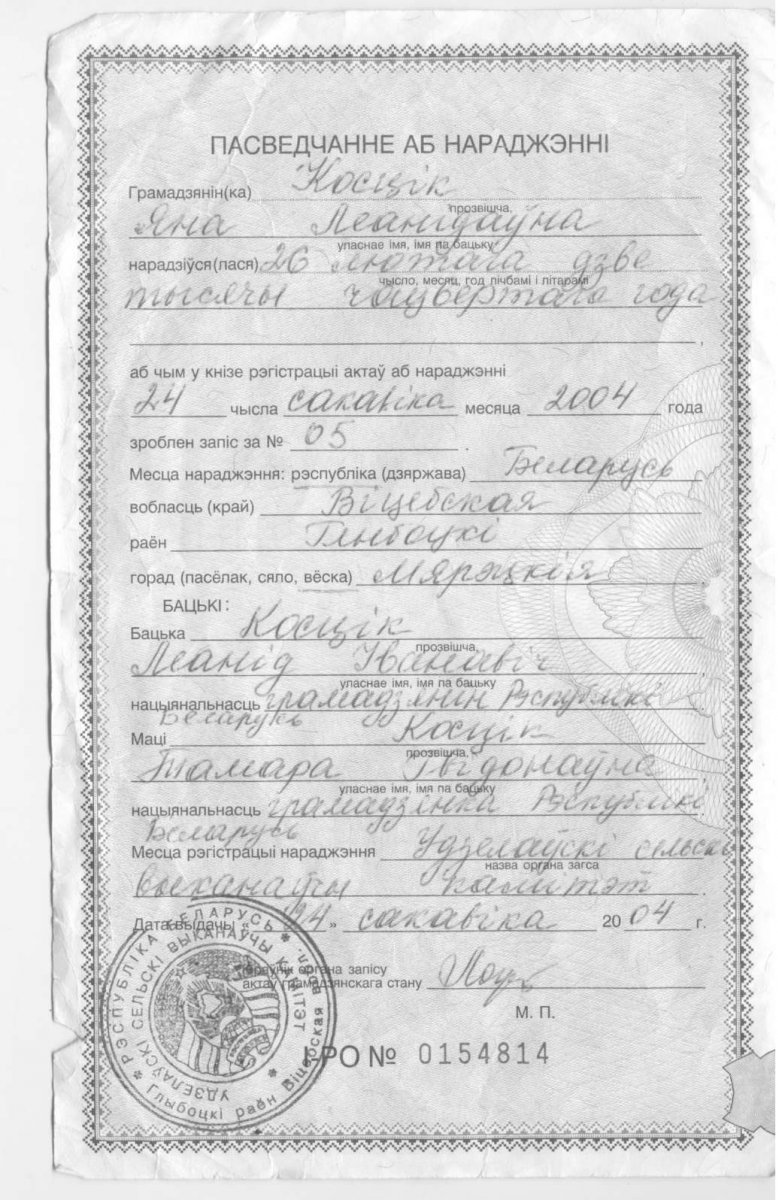 ПАСВЕДЧАННЕ АБ НАРАДЖЭННІ
Грамадзянін(ка) Косцік
прозвішча,
Яна Леанідаўна
уласнае імя, імя па бацьку
нарадзіўся(лася) 26 лютага дзве
число, месяц, год лічбамі і літарамі
тысячы чацвёртага года
аб чым у кнізе рэгістрацыі актаў аб нараджэнні
24 чысла сакавіка месяца 2004 года
зроблен запіс за № 05
Месца нараджэння: рэспубліка (дзяржава) Беларусь
вобласць (край) Віцебская
раён Глыбоцкі
горад (пасёлак, сяло, вёска) Мярэцкія
БАЦЬКІ:
Бацька Косцік
прозвішча,
Леанід Іванавіч
уласнае імя, імя па бацьку
нацыянальнасць грамадзянін Рэспублікі
Беларусь
Маці Косцік
прозвішча,
Тамара Гвідонаўна
уласнае імя, імя па бацьку
нацыянальнасць грамадзянка Рэспублікі
Беларусь
Месца рэгістрацыі нараджэння Удзелаўскі сельскі
назва органа загса
выканаўчы камітэт
Дата выдачы «24» сакавіка 2004 г.
органа запісу
актаў грамадзянскага стану
М. П.
І-РО № 0154814
РЭСПУБЛІКА БЕЛАРУСЬ * Глыбоцкі раён Віцебская вобл. *
УДЗЕЛАЎСКІ СЕЛЬСКІ ВЫКАНАЎЧЫ КАМІТЭТ *